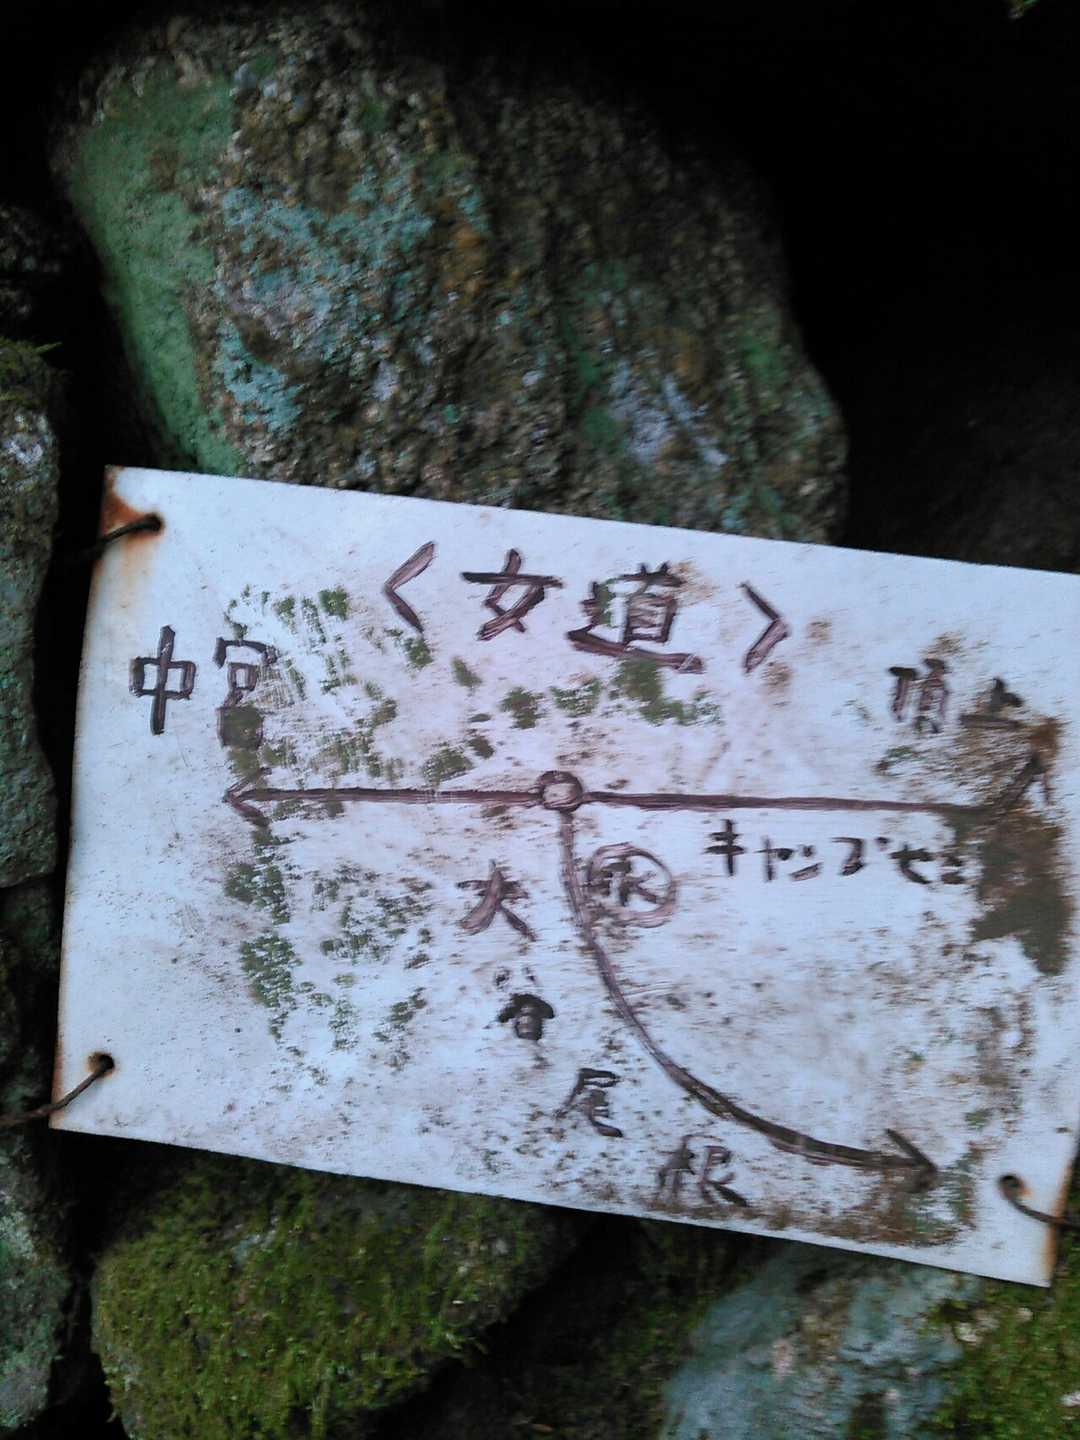 〈女道〉
中宮
頂上へ
キャンプセ
大谷尾根